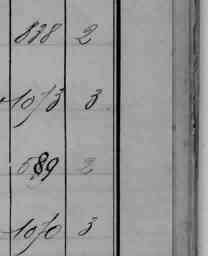 838 2
1073 3
589 2
1070 3